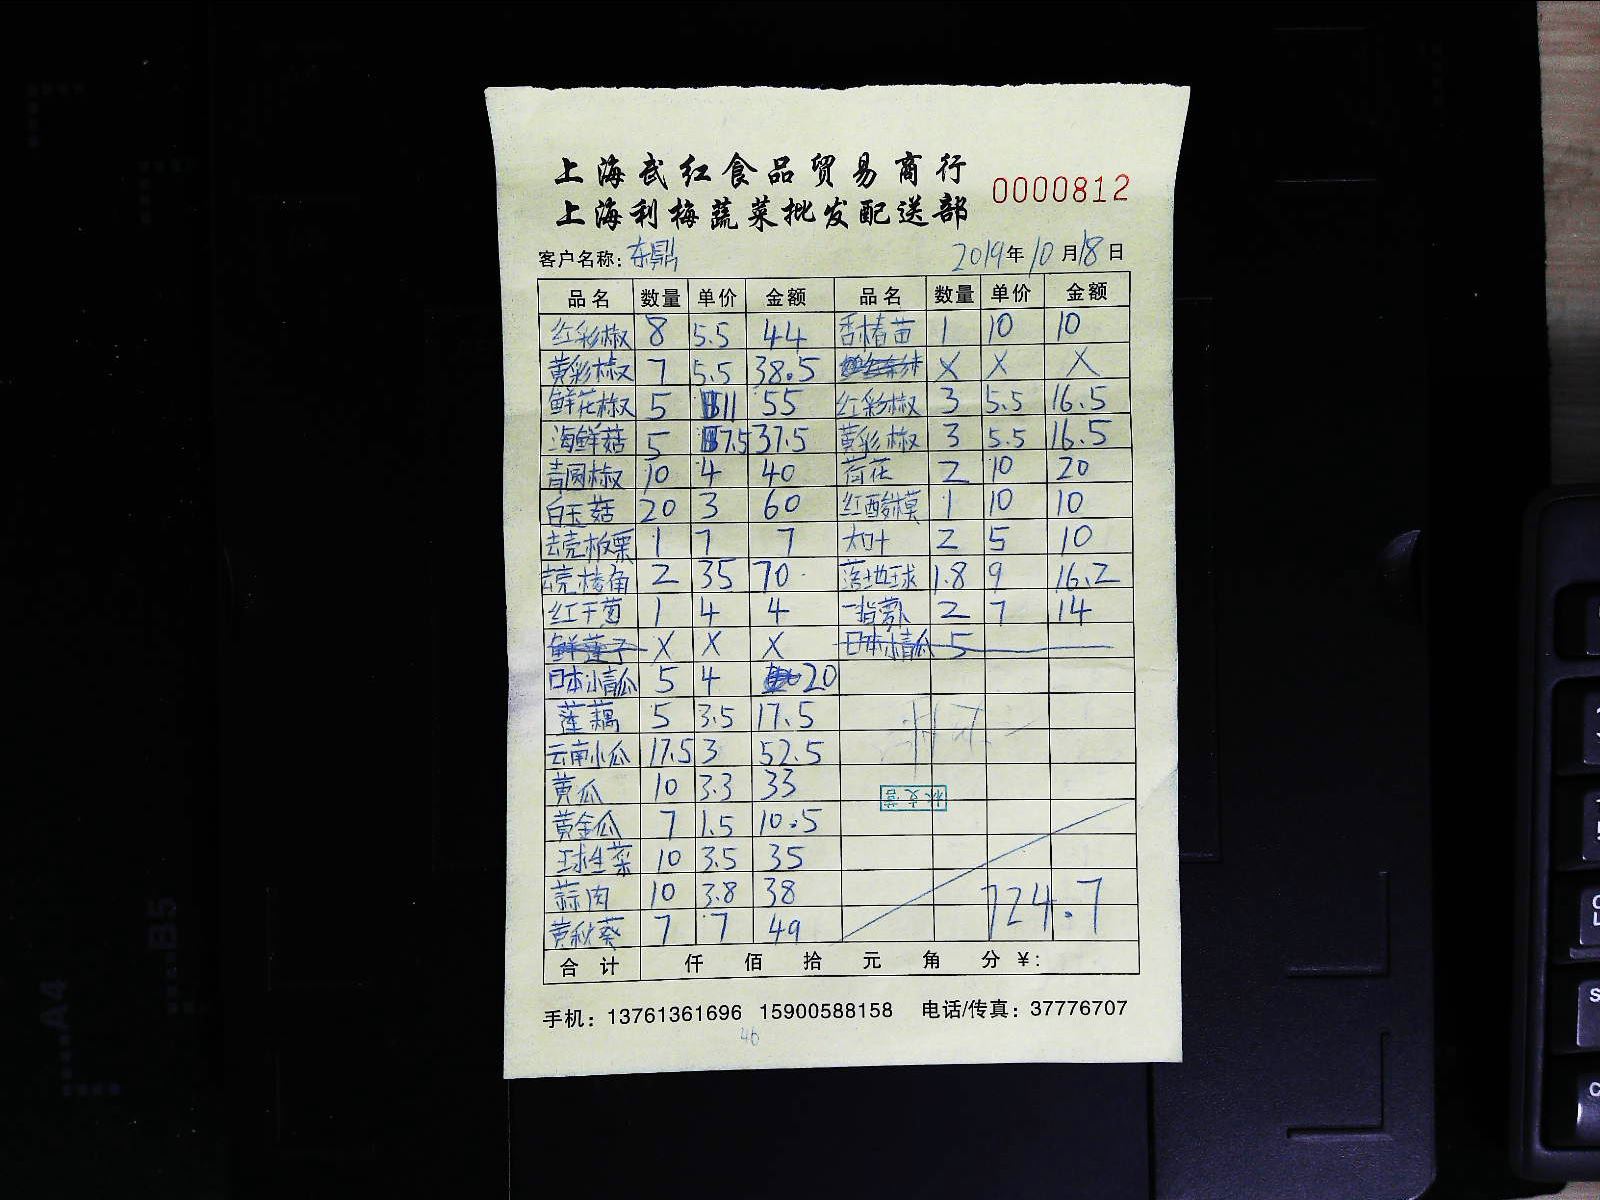 上海武红食品贸易商行
上海利梅蔬菜批发配送部
0000812
客户名称: 东鼎 2019年10月18日
品名 数量 单价 金额 品名 数量 单价 金额
红彩椒 8 5.5 44 香椿苗 1 10 10
黄彩椒 7 5.5 38.5 X X X
鲜花椒 5 11 55 红彩椒 3 5.5 16.5
海鲜菇 5 7.5 37.5 黄彩椒 3 5.5 16.5
青圆椒 10 4 40 荷花 2 10 20
白玉菇 20 3 60 红酸模 1 10 10
去壳板栗 1 7 7 大叶 2 5 10
去壳棱角 2 35 70 落地球 1.8 9 16.2
红干葱 1 4 4 一指萝卜 2 7 14
鲜莲子 X X X 日本小青瓜 5
日本小青瓜 5 4 20
莲藕 5 3.5 17.5
云南小瓜 17.5 3 52.5
黄瓜 10 3.3 33
黄金瓜 7 1.5 10.5
球生菜 10 3.5 35
蒜肉 10 3.8 38
黄秋葵 7 7 49 724.7
合计 仟 佰 拾 元 角 分 ¥:
手机: 13761361696 15900588158 电话/传真: 37776707
46
A4
B5